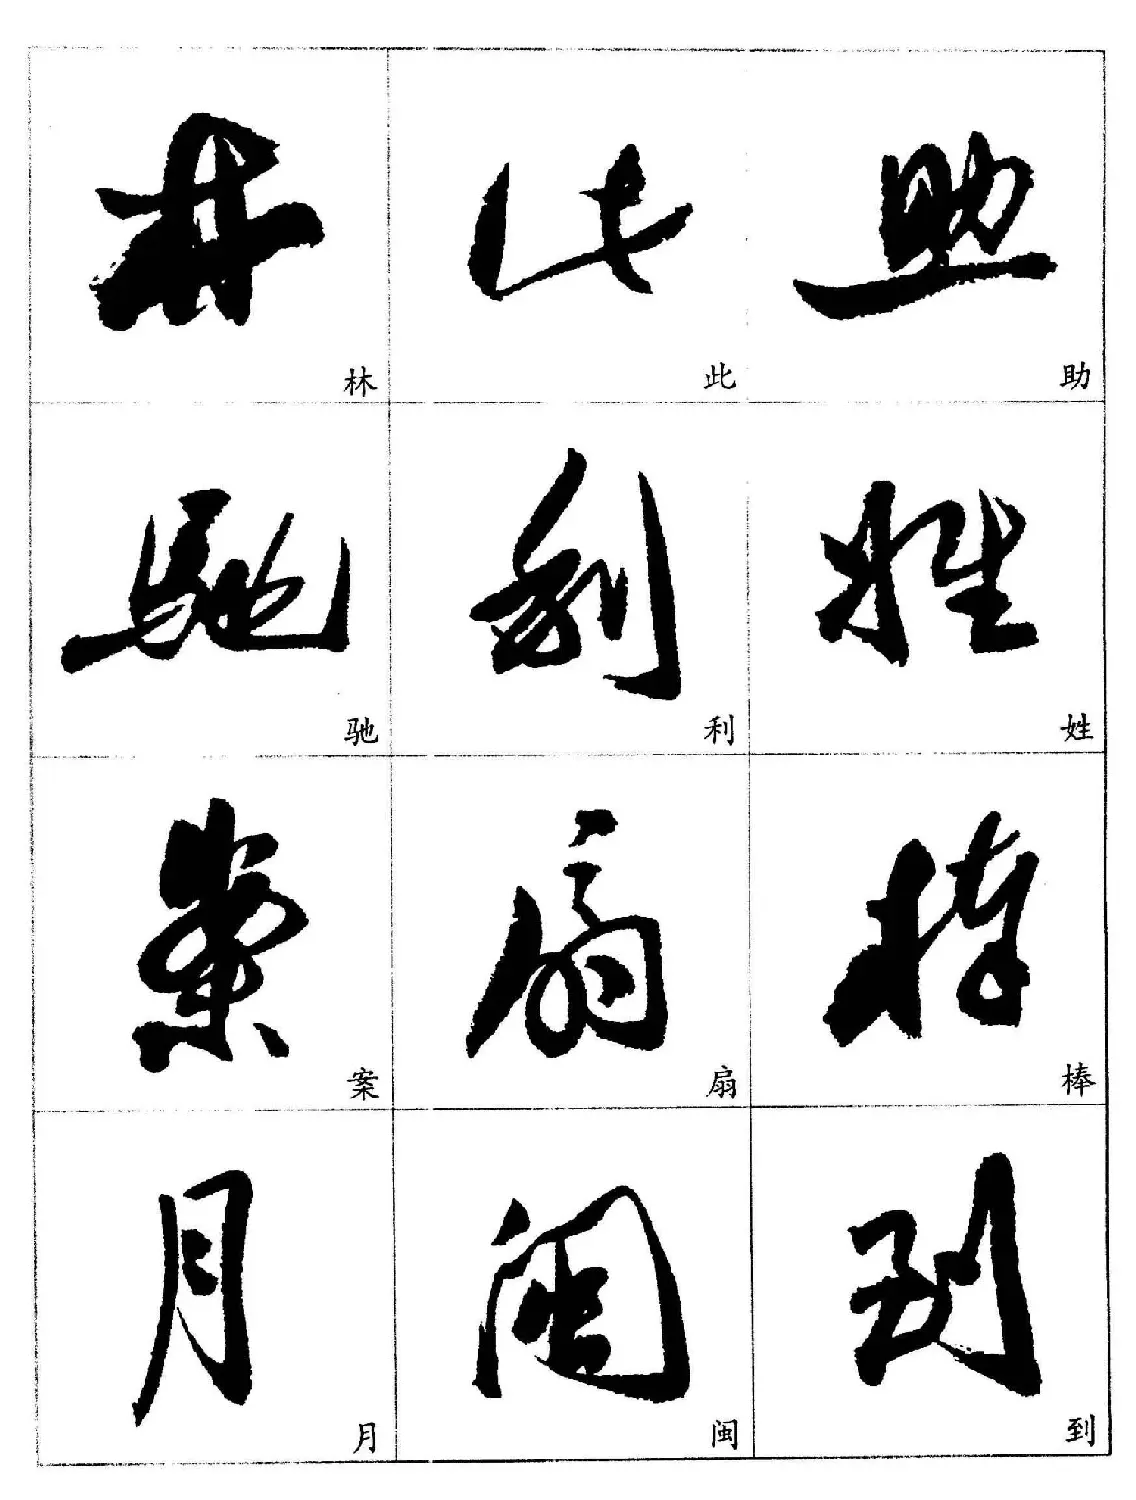 林 此 助
驰 利 姓
案 扇 棒
月 闽 到